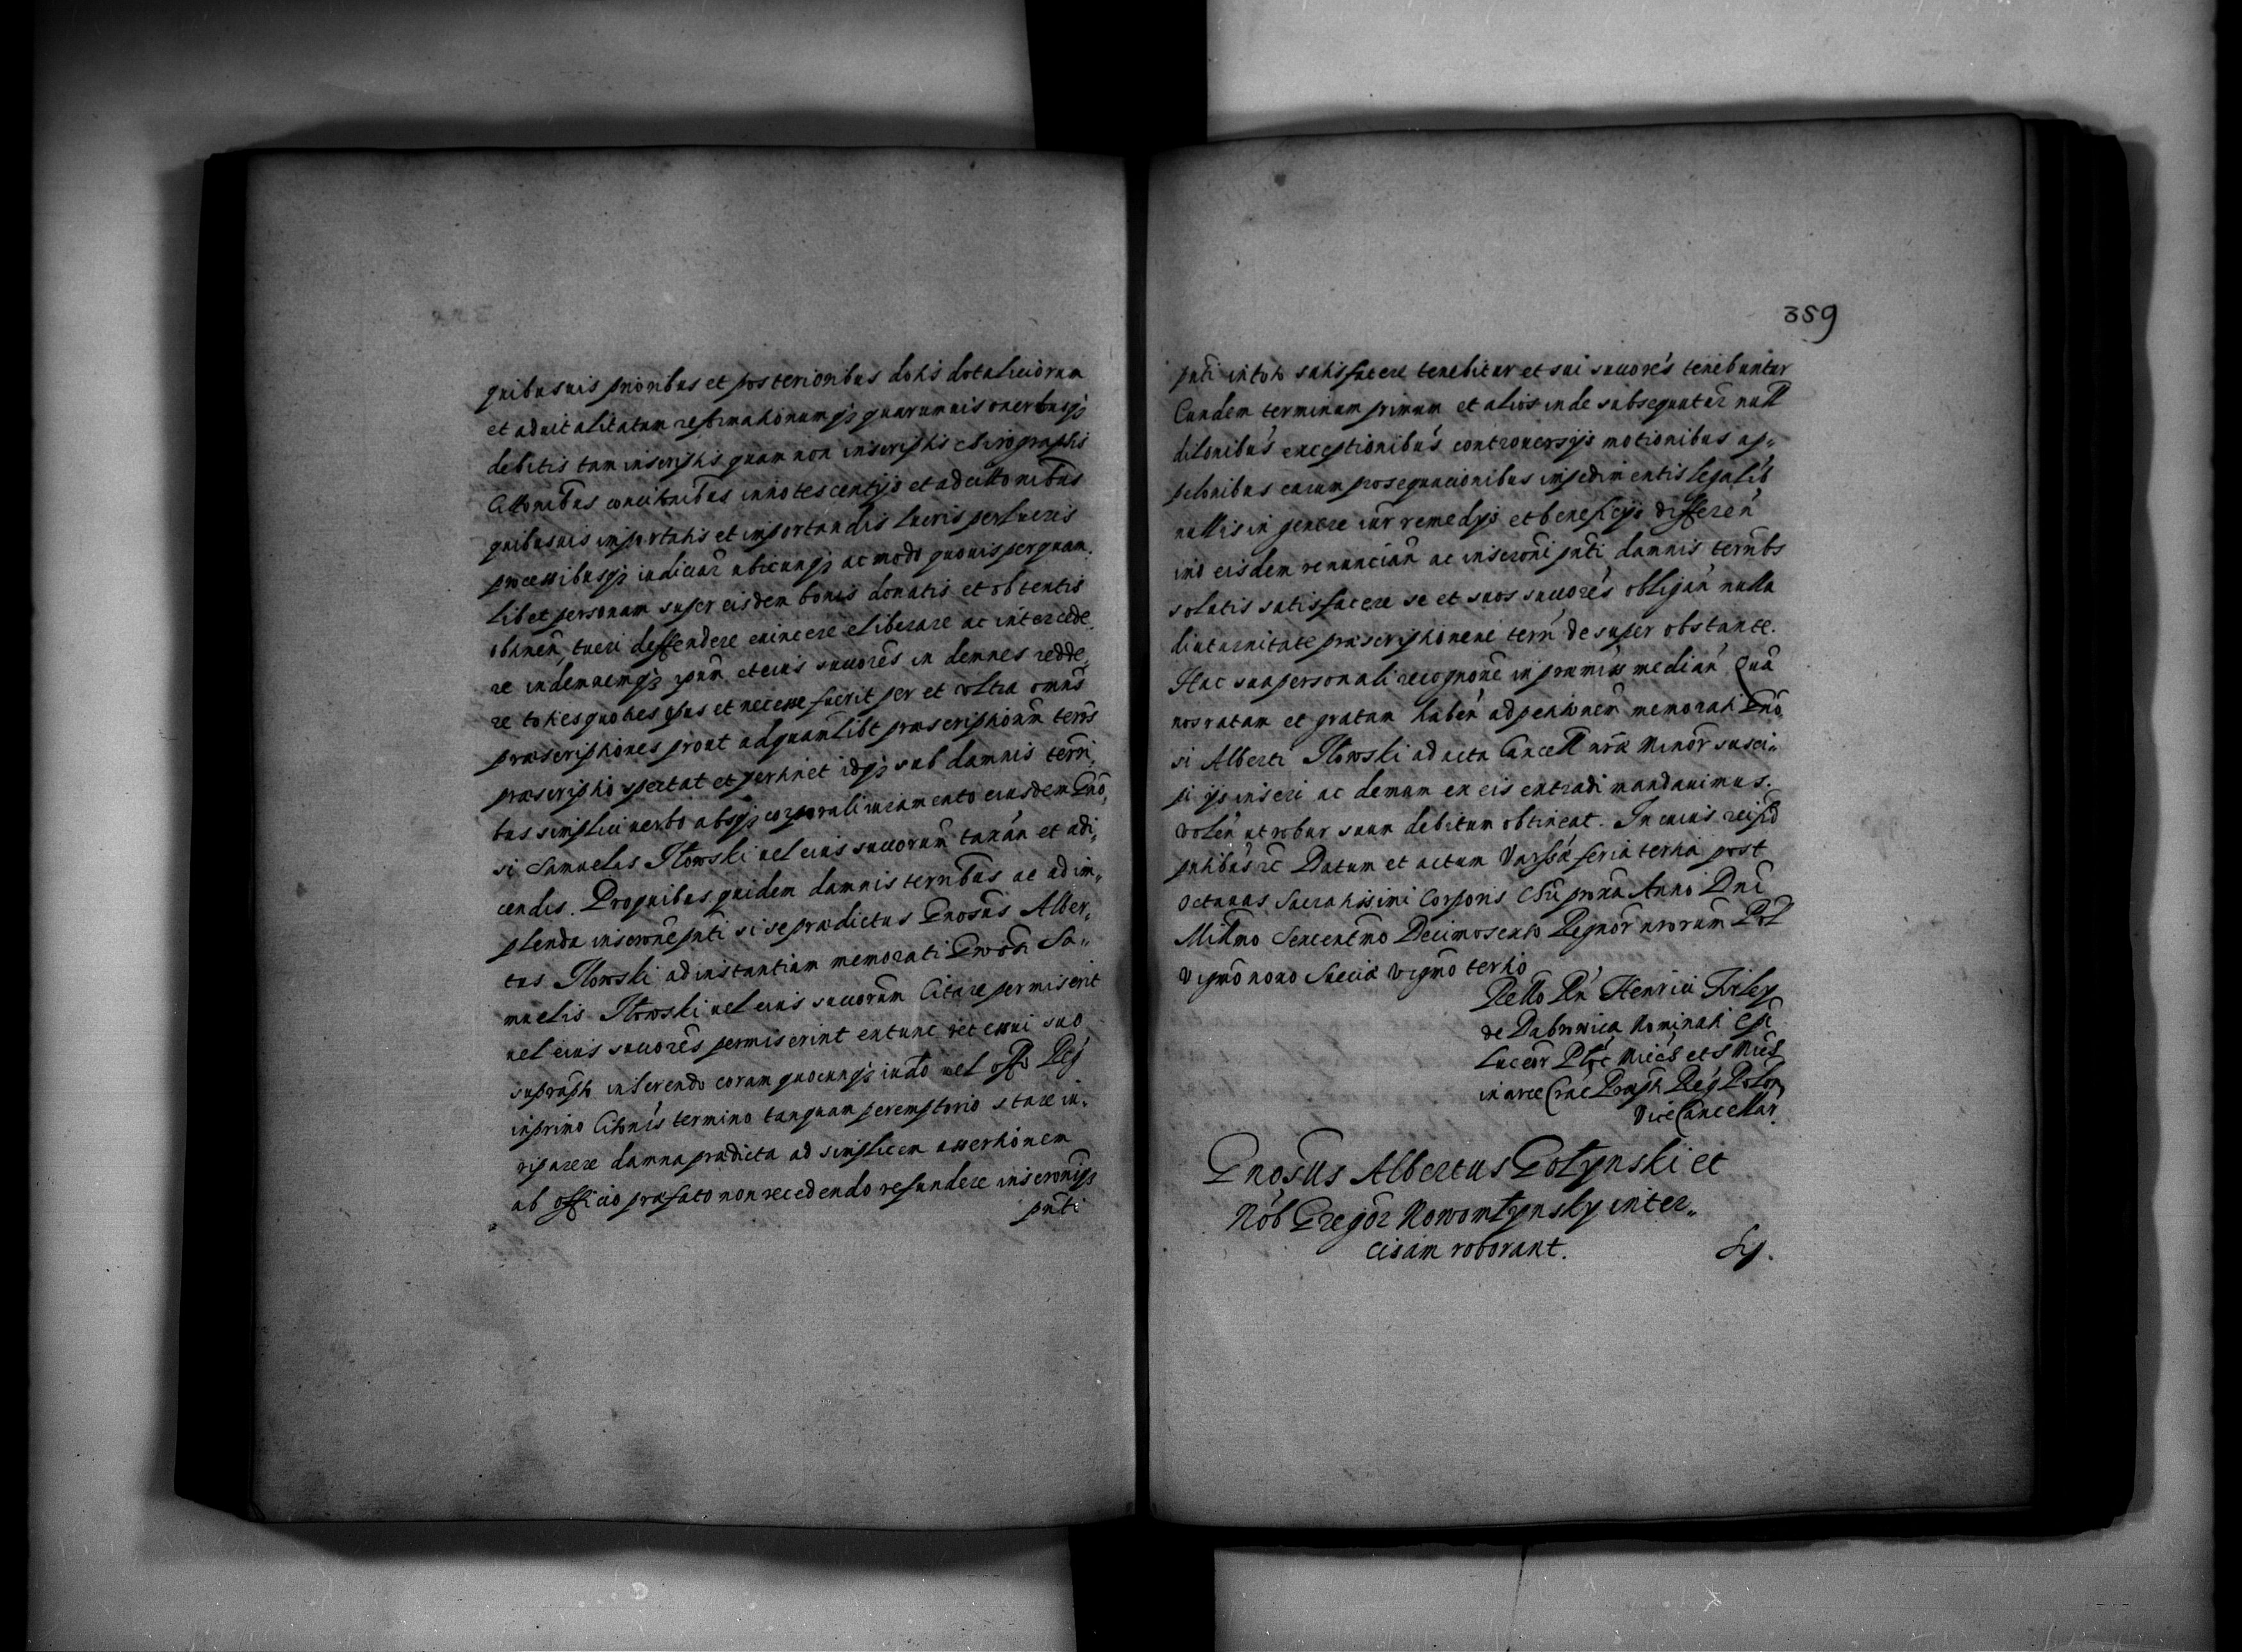 quibusuis prioribus et posterioribus dotis dotaliciorum
et aduitalitatum reformationumq3 quarumuis oneribusq3
debitis tam inscriptis quam non inscriptis chirographis
innotescentijs et
quibusuis importatis et importandis lucris perlucris
processibusq3 iudiciar ubicunq3 ac modo quouis per quam
libet personam super eisdem bonis donatis et obtentis
obtinen, tueri deffendere euincere eliberare ac intercede,
re indemnemq3 ipsum et eius succores in demnes redde,
re toties quoties opus et necesse fuerit per et vltra omnes
præscriptiones prout ad quamlibt præscriptionum terris
præscriptio spectat et pertinet idq3 sub damnis terri,
bus simplici uerbo absq3 corporali iuramento eiusdem Gno,
si Samuelis Iłowski uel eius succorum taxan et edi,
cendis. Pro quibus quidem damnis ternbus ac adim,,
plenda inscrone pnti si se prædictus Gnosus Alber,,
tus Iłowski ad instantiam memorati Gnosi Sa,,
muelis Iłowski uel eius succorum Citare permiserit
uel eius succores permiserint extunc
inserendo coram quocunq3 iudo uel offo Reg
in primo Citonis termino tanquam peremptorio stare in,
riparere damna prædicta ad simplicem assertionem
ab officio præfato non recedendo refundere inscronisq3
pnti
359
pnti in toto satisfacere tenebitur et sui succores tenebuntur
Eundem terminum primum et alios inde subsequatur null
dilonibus exceptionibus controuersijs motionibus ap,,
pelonibus earum prosequacionibus impedimentis legalib
nullis in genere iur remedijs et beneficijs differen
imo eisdem renuncian ac inscroni pnti damnis ternbs
solutis satisfacere se et suos succores obligan nulla
diuturnitate præscriptioneue terri desuper obstante.
Hac sua personali recognone in præmiss median Quā
nos ratam et gratam haben ad petitionem memorati Gno,
si Alberti Iłowski ad acta Cancell nræ Minor susci,,
pi ijs inseri ac demum ex eis extradi mandauimus.
volen ut robur suum debitum obtineat. In cuius rei fid
pntibus re Datum et actum Varssæ feria tertia post
octauas Sacratissimi Corporis Chri proxa Anno Dni
Millmo Sexcentmo Decimosexto Regnor nrorum Pol
vigmo nono Sueciæ vigmo tertio
Rello Rn Henrici Firley
de Dabrowica Nominati Epi
Luceor Ploc Miec et S Mich
in arce Crac Præpti Reg Polon
ViceCancellar.
Gnosus Albertus Gołynski et
Nob Gregor Nowomłynsky inter,,
cisam roborant.